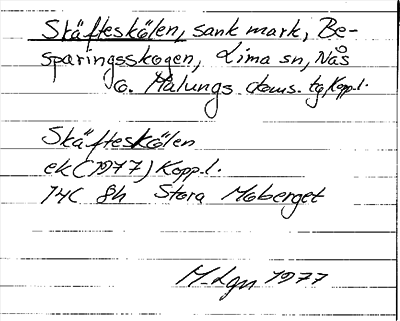 Skäfteskölen, sank mark, Be-
sparingsskogen, Lima sn, Nås
o. Malungs doms. tg, Kopp.l.
Skäfteskölen
ek (1977) Kopp.l.
14C 8h Stora Moberget
M. Lgn 1977